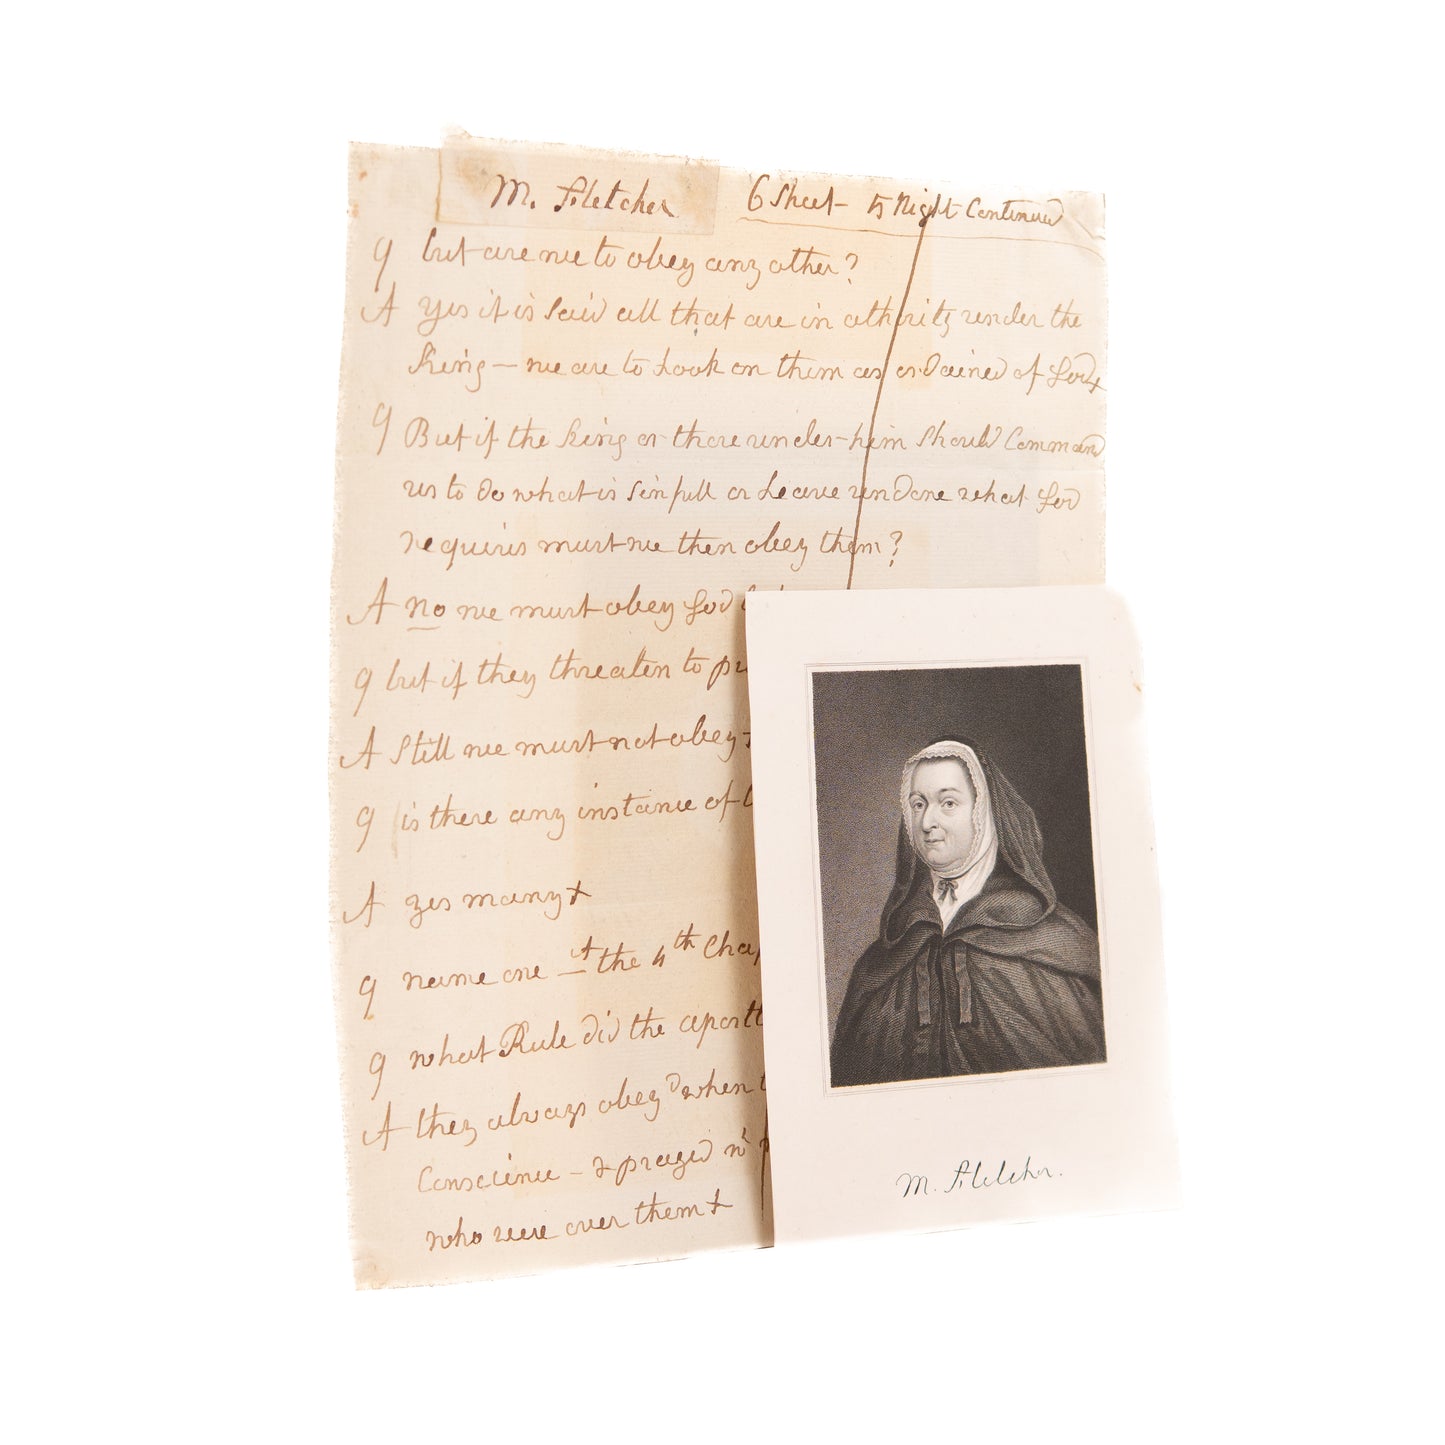 M. Fletcher 6 Sheet - 5 Night Continued
q but are we to obey any other?
A yes it is said all that are in athority under the
King - we are to Look on them as ordained of God+
q But if the King or those under-him should Command
us to do what is sinfull or Leave undone what God
requires must we then obey them?
A no we must obey God
q but if they threaten to
A Still we must not obey +
q is there any instance of
A yes many +
q name one - A the 4th Chap
q what Rule did the
A they always obey'd when
Conscience - & prayed
who were over them +
M. Fletcher.